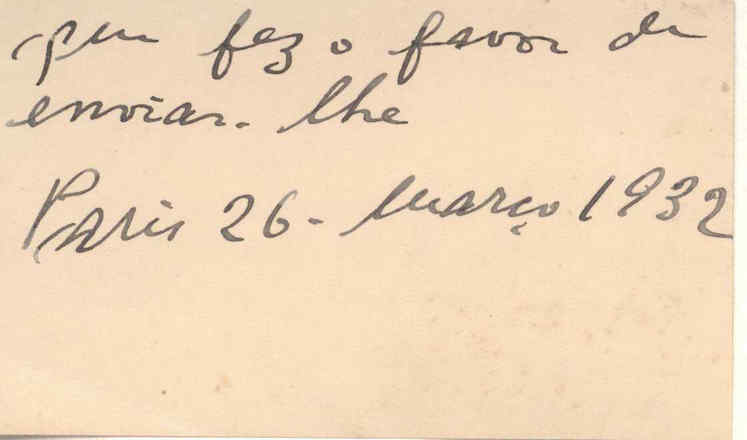 que fez o favor de
enviar-lhe
Paris 26-Março 1932